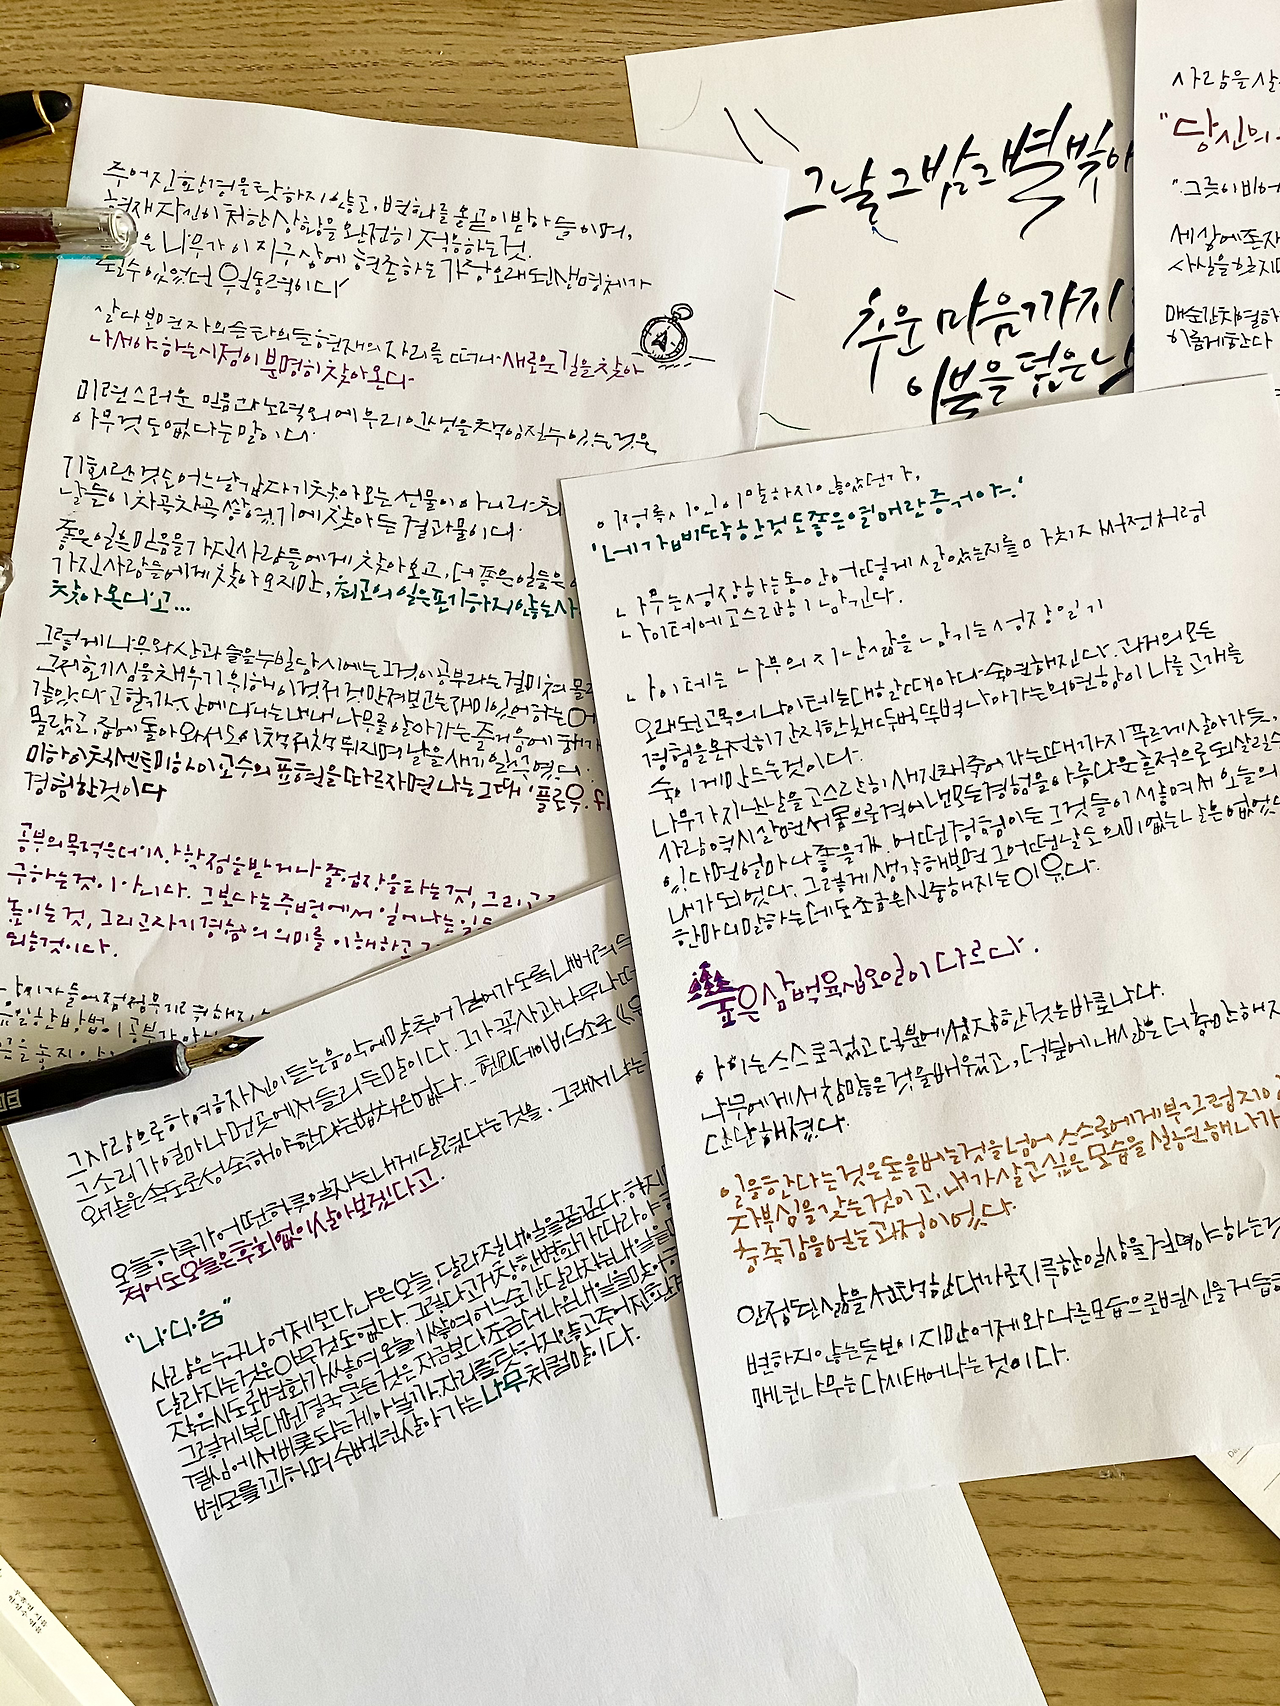 주어진 환경을 탓하지 않고, 변화를 올곧이 받아들이며,
현재 자신이 처한 상황을 완전히 적응하는 것.
은 나무가 이 지구상에 현존하는 가장 오래된 생명체가
될 수 있었던 원동력이다
살다보면 자의든 타의든 현재의 자리를 떠나 새로운 길을 찾아
나서야 하는 시점이 분명히 찾아온다
미련스러운 믿음과 노력 외에 우리 인생을 책임질 수 있는 것은
아무것도 없다는 말이다.
기회란 것도 어느날 갑자기 찾아오는 선물이 아니라
날들이 차곡차곡 쌓였기에 찾아드는 결과물이다.
좋은 일은 믿음을 가진 사람들에게 찾아오고, 더 좋은 일들은
가진 사람들에게 찾아오지만, 최고의 일은 포기하지 않는 사
찾아온다'고...
그렇게 나무와 산과 들을 누빌 당시에는 그것이 공부라는 걸 미처 몰
그저 호기심을 채우기 위해 이것저것 만져보고는 재미있어하는
같았다고 할까. 산에 다니는 내내 나무를 알아가는 즐거움에
몰랐고, 집에 돌아와서도 이 책 저 책 뒤지며 날을 새기 일쑤였다.
미하이 칙센트미하이 교수의 표현을 따르자면 나는 그때 '플로우. fl
경험한 것이다
공부의 목적은 더 이상 학점을 받거나 졸업장을 타는 것, 그리고
구하는 것이 아니다. 그보다는 주변에서 일어나는 일
높이는 것, 그리고 자기 경험의 의미를 이해하고
되는 것이다.
나이가 들어 점점 무기력해지
유일한 방법이 공부가 아
끈을 놓지
그날 그 밤 그 별빛아
추운 마음까지
이불을 덮은
사람을 살
"당신의
"그릇이 비어
세상에 존재
사실을 흔히
매순간 치열하
이롭게 한다
이정록 시인이 말하지 않았던가,
'네가 삐딱한 것도 좋은 열매란 증거야.'
나무는 성장하는 동안 어떻게 살았는지를 마치 자서전처럼
나이테에 고스란히 남긴다.
나이테는 나무의 지난 삶을 남기는 성장 일기
오래된 고목의 나이테를 대할 때마다 숙연해진다. 과거의 모든
경험을 온전히 간직한 채 뚜벅뚜벅 나아가는 의연함이 나를 고개를
숙이게 만드는 것이다.
나무가 지난날을 고스란히 새긴 채 죽어가는 때까지 푸르게 살아가듯,
사람 역시 살면서 몸으로 겪어낸 모든 경험을 아름다운 흔적으로 되살릴 수
있다면 얼마나 좋을까. 어떤 경험이든 그것들이 쌓여서 오늘의
내가 되었다. 그렇게 생각해보면 그 어떤 날도 의미 없는 날은 없었
한마디 말하는 데도 조금은 신중해지는 이유다.
숲은 삼백육십오일이 다르다.
아이는 스스로 컸고 덕분에 성장한 것은 바로 나다.
나무에게서 참 많은 것을 배웠고, 덕분에 내 삶은 더 충만해지
단단해졌다.
일을 한다는 것은 돈을 버는 것을 넘어 스스로에게 부끄럽지 않
자부심을 갖는 것이고, 내가 살고 싶은 모습을 실현해 나가
충족감을 얻는 과정이었다.
안정된 삶을 선택한 대가로 지루한 일상을 견뎌야 하는 것
변하지 않는 듯 보이지만 어제와 다른 모습으로 변신을 거듭
매년 나무는 다시 태어나는 것이다.
그 사람으로 하여금 자신이 듣는 음악에 맞추어 걸어가도록 내버려두
그 소리가 얼마나 먼 곳에서 들리든 말이다. 그가 꼭 사과나무나 떡
와 같은 속도로 성숙해야 한다는 법칙은 없다... 헨리 데이비드 소로
오늘 하루가 어떤 하루일지는 내게 달렸다는 것을. 그래서 나는
적어도 오늘은 후회없이 살아보겠다고.
"나·다·움"
사람은 누구나 어제보다 나은 오늘, 달라질 내일을 꿈꾼다. 하지만
달라지는 것은 아무것도 없다. 그렇다고 거창한 변화가 따라야
작은 시도로 변화가 쌓여 오늘이 쌓여 어느 순간 달라지는 내일을
그렇게 본다면 결국 모든 것은 지금보다 조금 더 나은 내일을 맞이
결심에서 비롯되는 게 아닐까. 자리를 탓하지 않고 주어진 환경
변모를 꾀하며 수백년 살아가는 나무처럼 말이다.